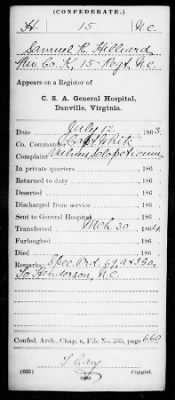 (CONFEDERATE.)
H 15 N.C.
Samuel R. Hilliard
Co. K, 15 Regt. N.C.
Appears on a Register of
C. S. A. General Hospital,
Danville, Virginia.
Date July 12, 1863.
Co. Commander Capt White
Complaint Vulnus Sclopeticum
In private quarters
Returned to duty
Deserted
Discharged from service
Sent to General Hospital
Transferred Mch 30 1864
Furloughed
Died
Remarks: Spec. Ord.
To Henderson, N.C.
Confed. Arch., Chap. 6, File No. 260, page 660
Copyist.